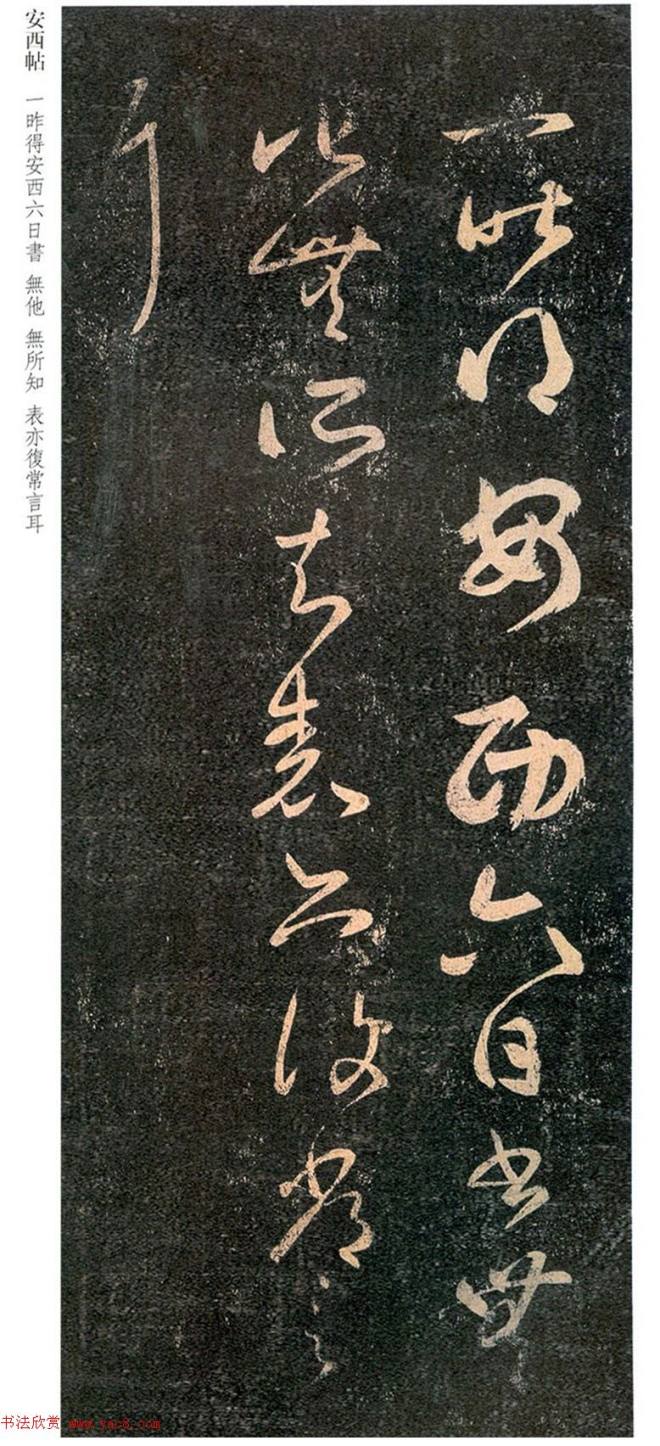 安西帖 一昨得安西六日書 無他 無所知 表亦復常言耳
一昨得安西六日書無
他無所知表亦復常言
耳
书法欣赏 www.yac8.com